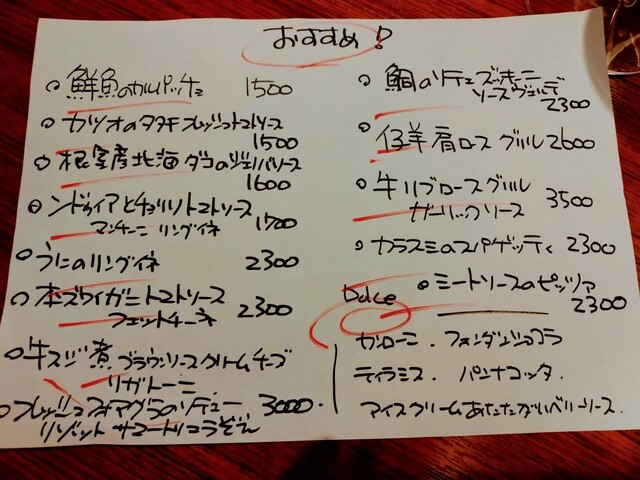 おすすめ!
○ 鮮魚のカルパッチョ 1500
○ カツオのタタキ フレッシュトマトソース
1500
○ 根室産北海ダコのジェノバソース
1600
○ ンドゥイアとチョリソトマトソース
マンチーニ リングイネ 1700
○ うにのリングイネ 2300
○ 本ズワイガニトマトソース
フェットチーネ 2300
○ 牛スジ煮ブラウンソースクリームチーズ
リガトーニ
○ フレッシュフォアグラのソテュー 3000
リゾット サマートリュフ
○ 鯛のソテュ ズッキーニ
ソースヴェルデ
2300
○ 仔羊肩ロース グリル 2600
○ 牛リブロースグリル
ガーリックソース 3500
○ カラスミのスパゲッティ 2300
○ ミートソースのピッツァ
2300
Dolce
カンノーニ . フォンダンショコラ
ティラミス . パンナコッタ .
アイスクリームあたたかいベリーソース.